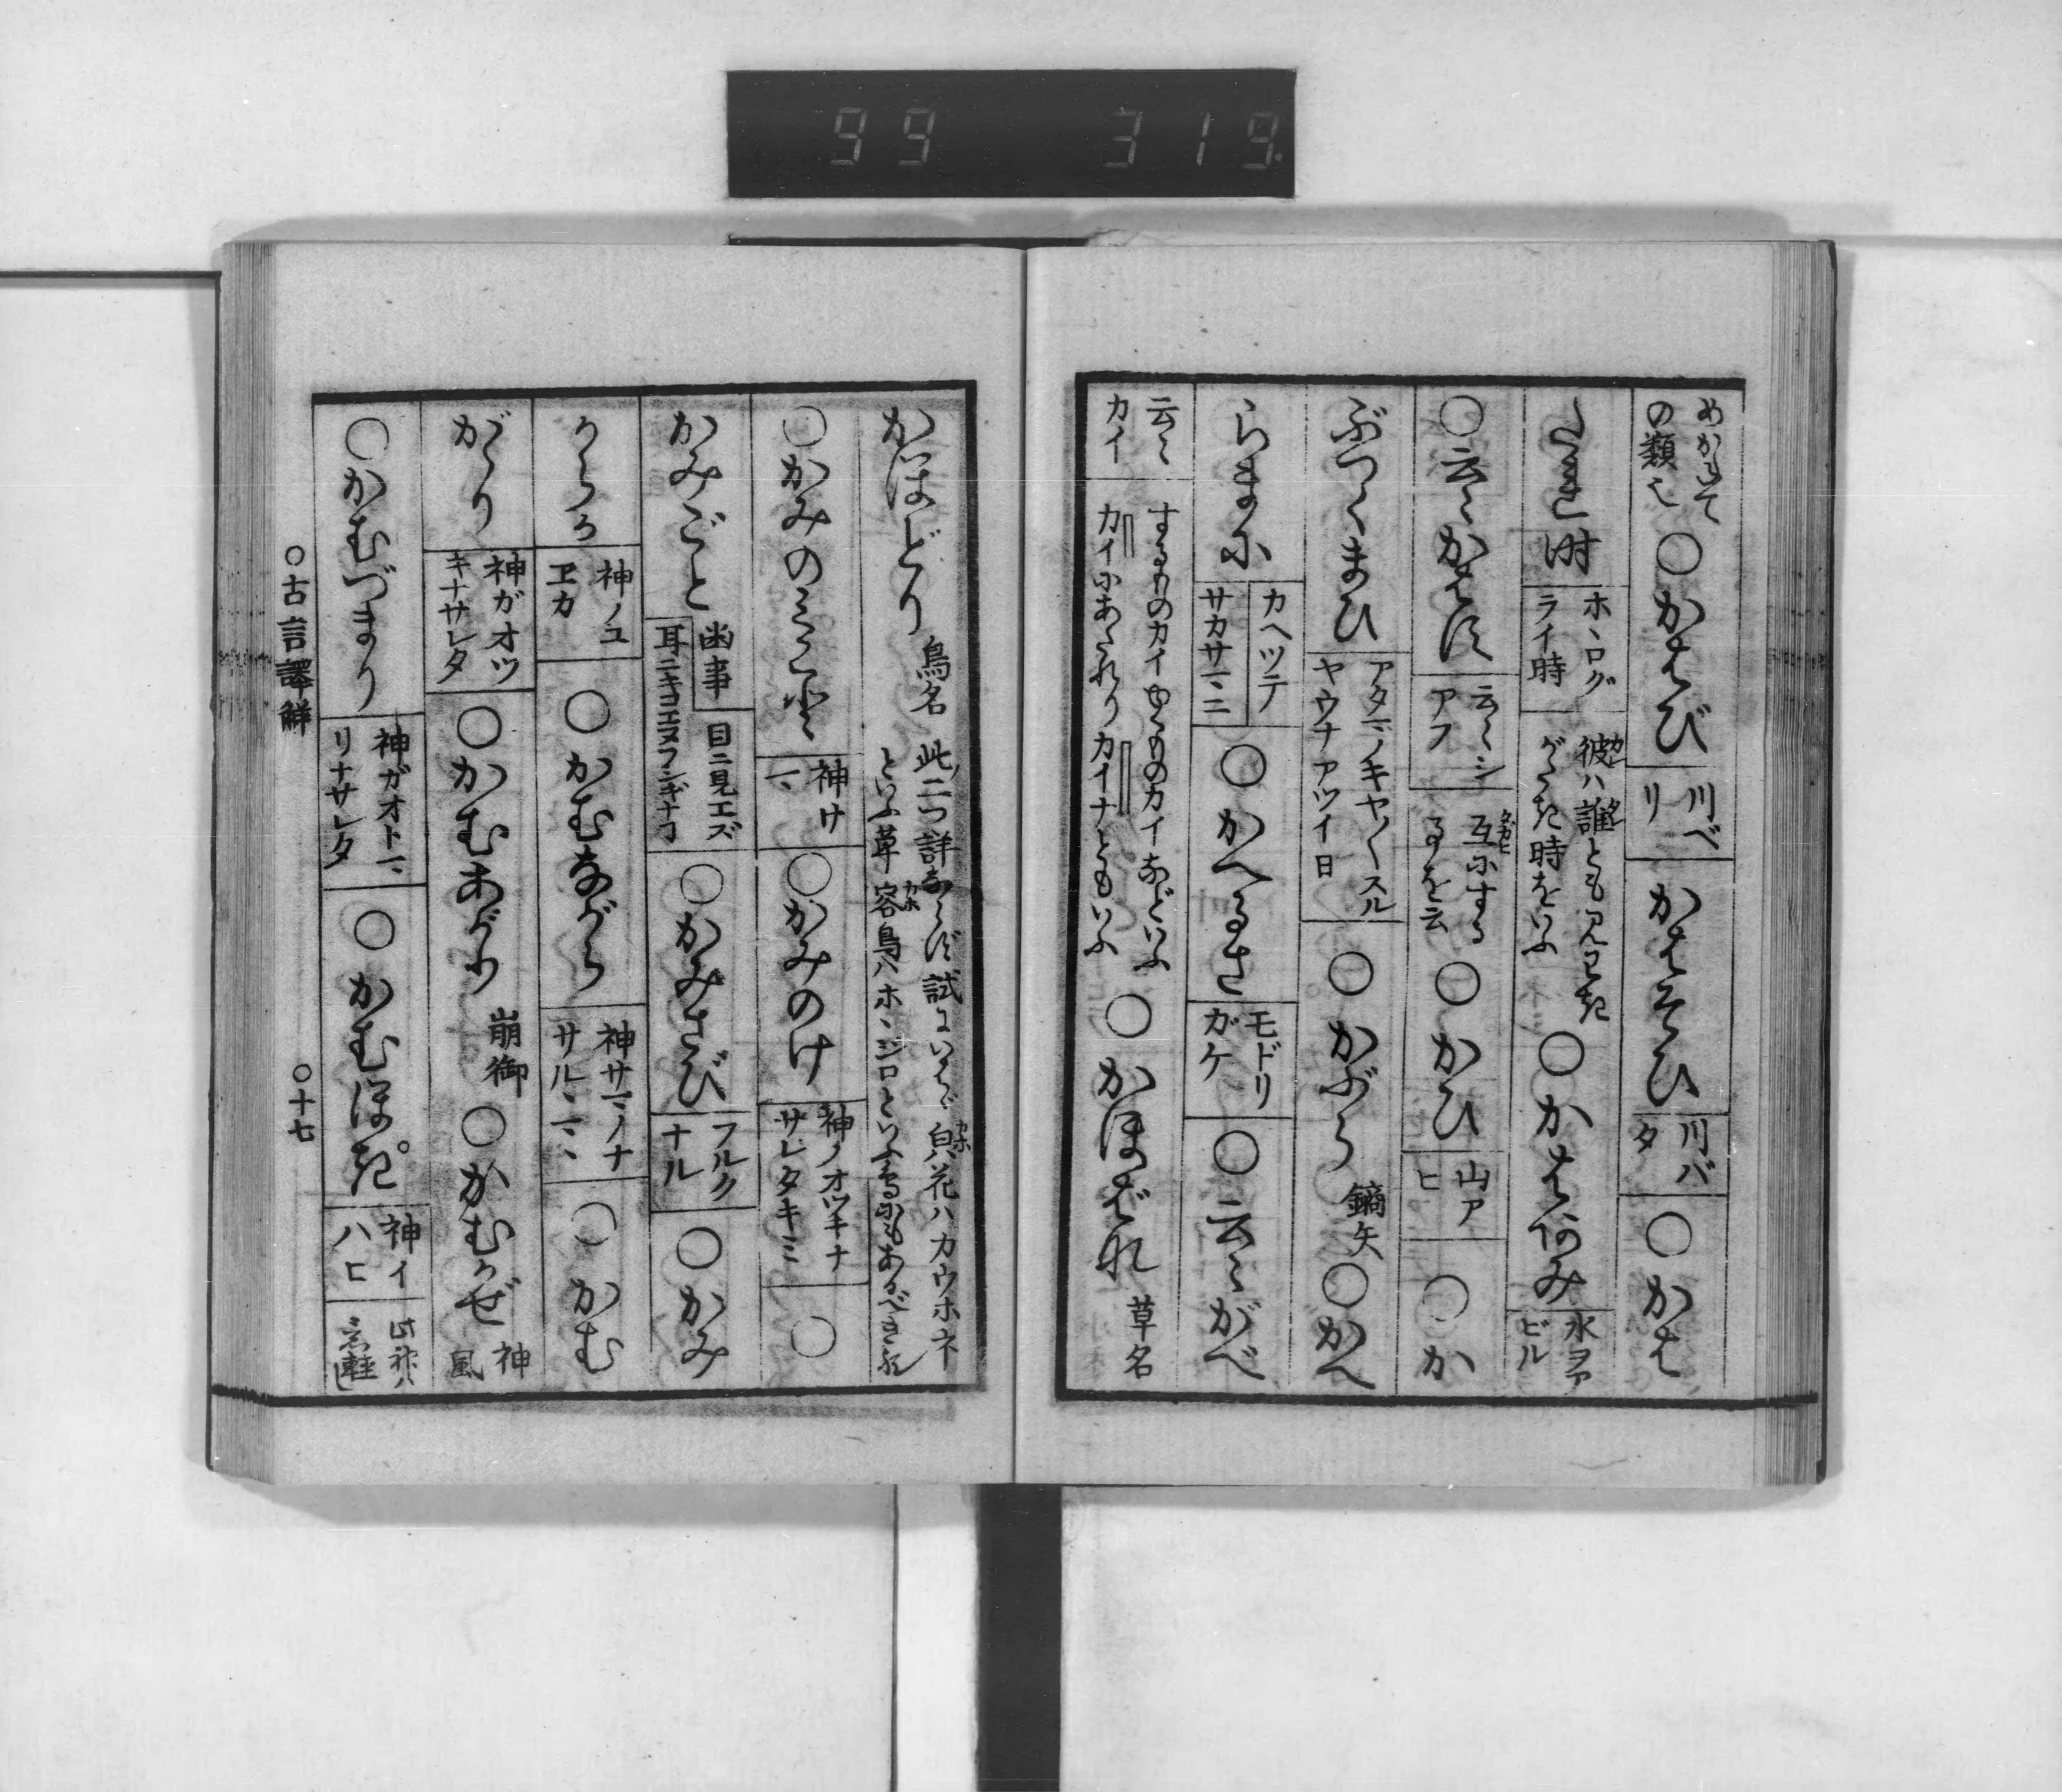 99 319
めかれて
の類也
○かはび
川ベ
リ
かはそひ
川バ
タ
○かは
たれ時
ホヽログ
ライ時
彼ハ誰とも見えわき
がたき時をいふ
○かはあみ
水ヲア
ビル
○云〻かはす
云〻シ
アフ
互にする
事を云
○かひ
山ア
ヒ
○か
ぶつくまひ
アタマノキヤ〱スル
ヤウナアツイ日
○かぶら
鏑矢
○かへ
らまに
カヘツテ
サカサマニ
○かへるさ
モドリ
ガケ
○云〻がべ
云〻
カイ
するものカイ
カイにあたれり カイナともいふ
○かほばな
草名
かほどり
鳥名
此二つ詳ならず試にいはゞ㒵花ハカウホネ
といふ草容鳥ハホヽジロといふ鳥にもあるべきか
○かみのみこと
神サマ
○かみのけ
神ノオツキナ
サレタキミ
○
かみごと
幽事
目ニ見エズ
耳ニキコエヌフシギナヿ
○かみさび
フルク
ナル
○かみ
からか
神ノユ
ヱカ
○かむながら
神サマノナ
サルヽマヽ
○かむ
がゝり
神ガオツ
キナサレタ
○かむあがり
崩御
○かむかぜ
神
風
○かむづまり
神ガオトマ
リナサレタ
○かむほき
神イ
ハヒ
○古言譯解
○十七